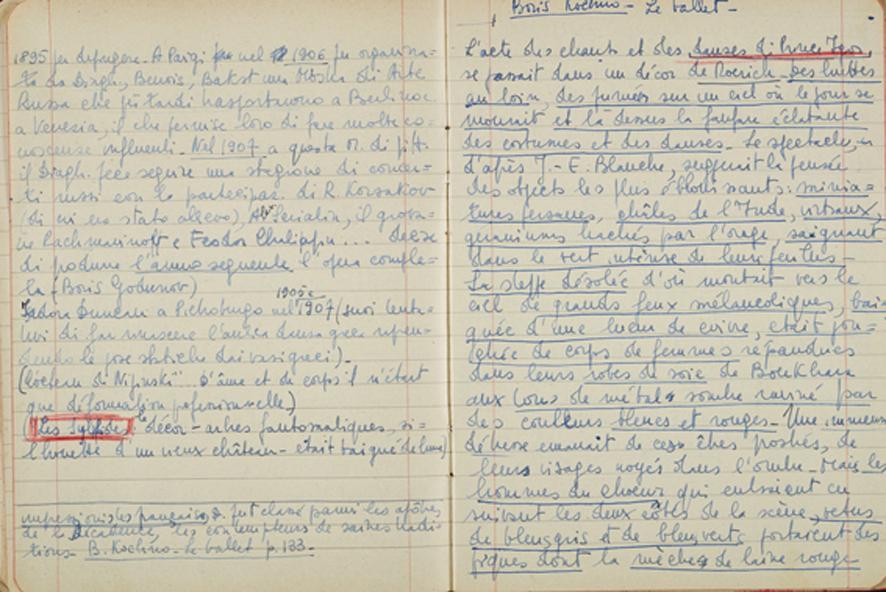 1895 per defungere. A Parigi nel 1906 fu organizza=
ta da Diagh., Benois, Bakst una Mostra di Arte
Russa che più tardi trasportarono a Berlino e
a Venezia, il che permise loro di fare molte co=
noscenze influenti. Nel 1907 a questa M. di pitt.
il Diagh. fece seguire una stagione di concer=
ti russi con la partecipaz. di R. Korsakov
(di cui era stato allievo), Scrialin, il giova=
ne Rachmaninoff e Feodor Chaliapin... decise
di produrre l'anno seguente l'opera comple=
ta (Boris Godunov)
Isadora Duncan a Pietroburgo nel 1905 e 1907 (suoi tenta=
tivi di far rinascere l'antica danza greca
le pose statiche dai vasi greci)_
(Cocteau di Nijinski "... d'âme et de corps il n'était
que déformation professionnelle)
(Les Sylphides décor - arbres fantomatiques, si=
lhouette d'un vieux château - était baigné de lune)
impressionistes français, fut classé parmi les apôtres
de la décadence, les contempteurs de saines tradi=
tions_ B. Kochno_ Le ballet p. 133._
Boris Kochno_ Le ballet_
L'acte des chants et des danses di Prince Igor,
se passait dans un décor de Roerich_ Des huttes
au loin, des fumées sur un ciel où le jour se
mourait et là dessus la fanfare éclatante
des costumes et des danses_ Le spectacle,
d'après J.-E. Blanche, suggérait la pensée
des objets les plus éblouissants: minia=
tures persanes, châles de l'Inde, vitraux,
géraniums hachés par l'orage, saignant
dans le vert intense de leurs feuilles_
La steppe désolée d'où montait vers le
ciel de grands feux mélancoliques, bai=
gnée d'une lueur de cuivre, etait jon=
chée de corps de femmes répandues
dans leurs robes de soie de Boukhara
aux tons de métal sombre raviné par
des couleurs bleues et rouges_ Une immense
détresse émanait de ces êtres prostrés, de
leurs visages noyés dans l'ombre_ Mais les
hommes du choeur qui entraient en
suivant les deux côtés de la scène, vetus
de bleugris et de bleuvert portaient des
piques dont la mèche de laine rouge